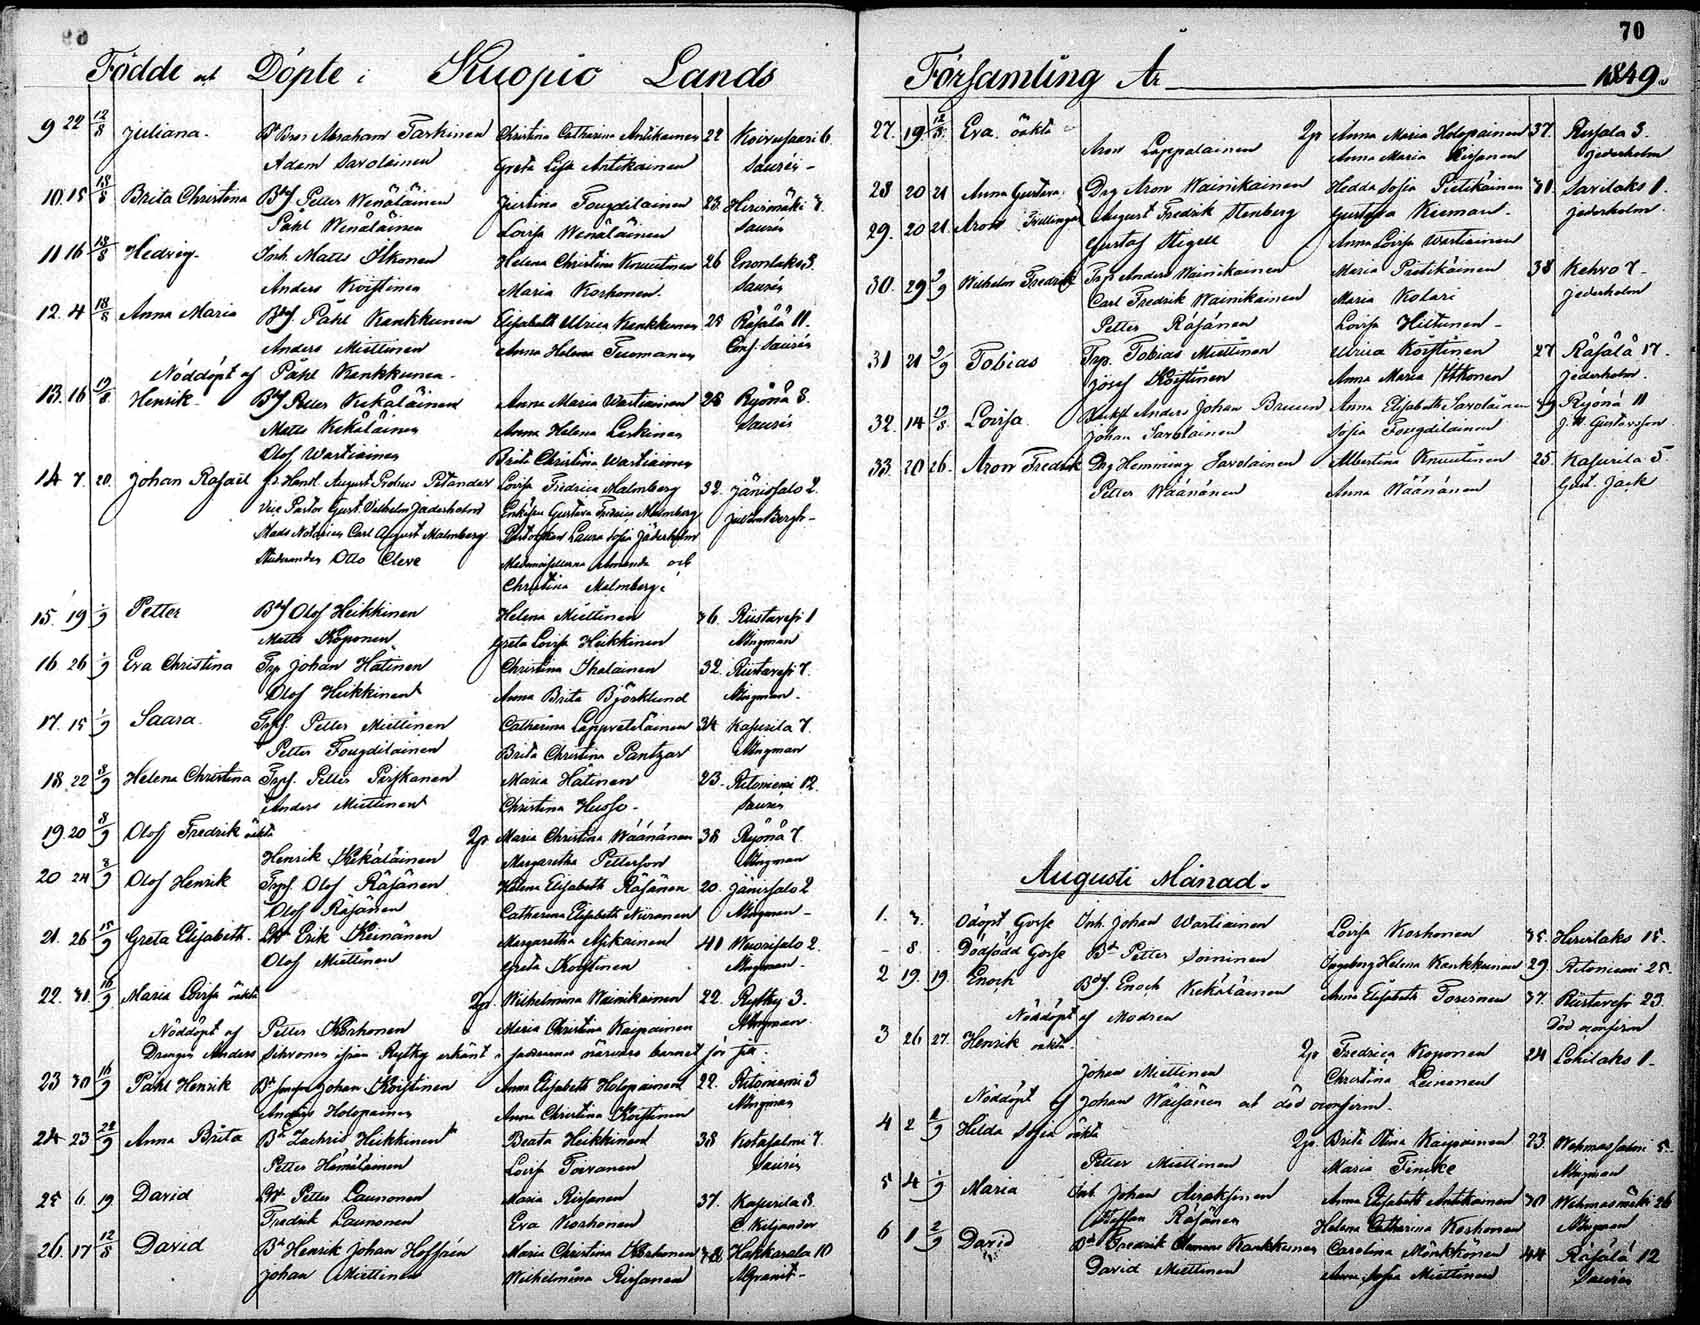 70
Födde och Döpte i Kuopio Lands
9 22 12/8 Juliana. Abraham Tarkinen Christina Catharina Antikainen 22 Koivusaari 6.
Adam Savolainen Greta Lisa Antikainen Saurén
10. 15 18/8 Brita Christina Petter Wenäläinen Justina Fougdilainen 23. Hirvimäki 7.
Påhl Wenäläinen Lovisa Wenäläinen Saurén
11 16 18/8 Hedvig. Inh. Matts Ikonen Helena Christina Knuutinen 26 Enonlaks 3.
Anders Koistinen Maria Korhonen. Saurén
12. 4 18/8 Anna Maria Påhl Kankkunen Elisabeth Ulrica Kankkunen 28 Räsälä 11.
Anders Miettinen Anna Helena Tuomanen Saurén
Nöddöpt af Påhl Kankkunen.
13. 16 19/8 Henrik. Petter Kekäläinen Anna Maria Wartiainen 28 Ryönä 8.
Matts Kekäläinen Anna Helena Leskinen Saurén
Olof Wartiainen Brita Christina Wartiainen
14 7. 20. Johan Rafael August Petander Lovisa Fredrica Malmberg 32. Jänissalo 2.
Vice Pastor Gust. Vilhelm Jäderholm Gustava Fredrica Malmberg
Carl August Malmberg Laura Sofia Jäderholm
Studeranden Otto Cleve Mademoisellerna Amanda och
Christina Malmberg.
15. 19 1/9 Petter Olof Heikkinen Helena Miettinen 36. Riistavesi 1
Matts Koponen Greta Lovisa Heikkinen Mngman
16 26 1/9 Eva Christina Trp Johan Hätinen Christina Ikalainen 32. Riistavesi 7.
Olof Heikkinen Anna Brita Björklund Mngman.
17. 15 1/9 Saara. Petter Miettinen Catharina Lappveteläinen 34 Kasurila 7.
Petter Fougdilainen Brita Christina Pantzar Mngman
18. 22 8/9 Helena Christina Petter Pirskanen Maria Hätinen 23. Ritoniemi 12.
Anders Miettinen Christina Husso. Saurén
19. 20 8/9 Olof Fredrik oäkta 2p Maria Christina Wäänänen 38 Ryönä 7.
Henrik Kekäläinen Margaretha Petterson Mngman
20 24 8/9 Olof Henrik Olof Räsänen Helena Elisabeth Räsänen 20. Jänissalo 2
Olof Räsänen Catharina Elisabeth Niiranen Mngman
21. 26 15/9 Greta Elisabeth. Erik Keinänen Margaretha Asikainen 41 Wuorisalo 2.
Olof Miettinen Greta Koistinen Mngman.
22. 31. 16/9 Maria Lovisa oäkta 2p. Wilhelmina Wainikainen 22. Rytky 3.
Nöddöpt af Petter Korhonen Maria Christina Kaipainen Mngman.
Drängen Anders Sihvonen ifrån Rytky erkänt i faddrarnas närvaro barnet för sit.
23 30 16/9 Påhl Henrik Johan Koistinen Anna Elisabeth Holopainen 22. Ritoniemi 3
Anders Holopainen Anna Christina Koistinen Mngman
24 23 22/9 Anna Brita Zachris Heikkinen Beata Heikkinen 38 Kotasalmi 7.
Petter Hämäläinen Lovisa Toivanen Saurén
25 6 19 David Petter Launonen Maria Rissanen 37. Kasurila 8.
Fredrik Launonen Eva Korhonen C. Kiljander
26. 17 12/8 David Henrik Johan Hoffrén Maria Christina Korhonen Hakkarala 10
Johan Miettinen Wilhelmina Rissanen AGranit
Församling År 1849.
27. 19 12/8 Eva. oäkta 2p Anna Maria Holopainen 37. 3.
Aron Lappalainen Anna Maria Rissanen Jäderholm
28 20 21 Anna Gustava. Drg Aron Wainikainen Hedda Sofia Pietikäinen 31. Savilaks 1.
29. 20 21. Aron Tvillingar August Fredrik Stenberg Gustava Kieman. Jäderholm.
Gustaf Stigell Anna Lovisa Wartiainen
30. 29 2/9 Wilhelm Fredrik Trp Anders Wainikainen Maria Pietikäinen 38 Kehvo 7.
Carl Fredrik Wainikainen Maria Kolari Jäderholm
Petter Räsänen Lovisa Hiltunen
31 21 2/9 Tobias Trp. Tobias Miettinen Ulrica Koistinen 27 Räsälä 17.
Josef Koistinen Anna Maria Itkonen Jäderholm.
32. 14 Lovisa Anders Johan Bruun Anna Elisabeth Savolainen 39 Ryönä 11
Johan Savolainen Sofia Fougdilainen Gustavson.
33. 20 26. Aron Fredrik Drg Hemming Savolainen Albertina Knuutinen 25. Kasurila 5
Petter Wäänänen Anna Wäänänen Gust. Jack
Augusti Månad.
1. 3. Odöpt Gosse Inh. Johan Wartiainen Lovisa Korhonen 35. Hirvilaks 15.
- 8. Dödfödd Gosse Petter Soininen Ingeborg Helena Kankkunen 29. Ritoniemi 25.
2 19. 19. Enoch Enoch Kekäläinen Anna Elisabeth Toivinen 37. Riistavesi 23.
Nöddöpt af Modren död oconfirm
3 26 27. Henrik oäkta. 2p Fredrica Koponen 24 Lohilaks 1.
Johan Miettinen Christina Leinonen
Nöddöpt af Johan Wäisänen och död oconfirm.
4 2 2/9 Hilda Sofia oäkta 2p. Brita Stina Kaipainen 23. Wehmassalmi 5.
Petter Miettinen Maria Finske Mngman
5 4 1/9 Maria Inh. Johan Airaksinen Anna Elisabeth Antikainen 30 Wehmasmäki 26
Staffan Räsänen Helena Catharina Korhonen Mngman
6 1 2/9 David Fredrik Clemens Kankkunen Carolina Mönkkönen 44 Räsälä 12
David Miettinen Anna Sofia Miettinen Saurén